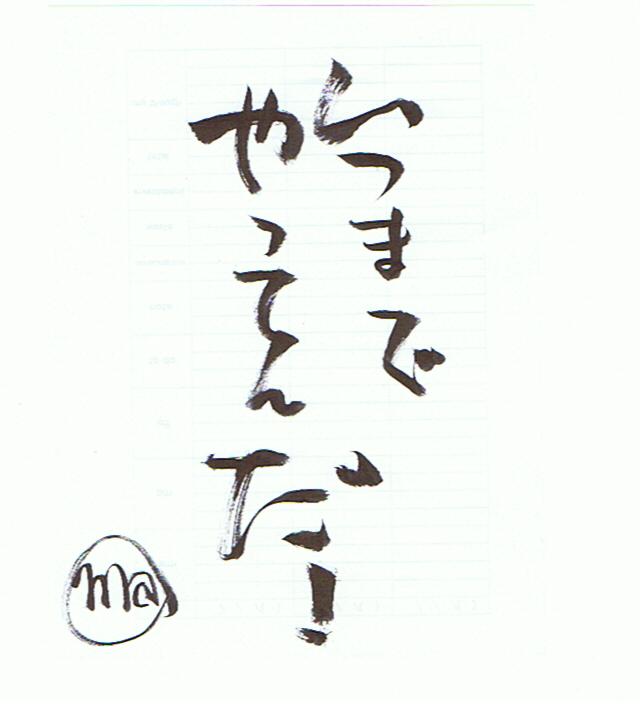 いつまで
やってんだ!
ma